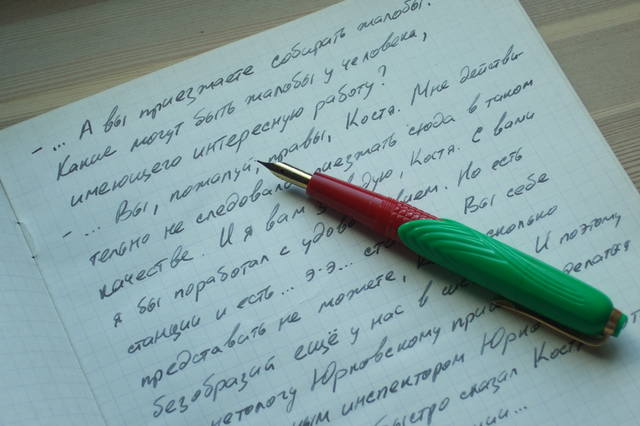 - ... А вы приезжаете собирать жалобы.
Какие могут быть жалобы у человека,
имеющего интересную работу?
- ... Вы, пожалуй, правы, Костя. Мне действи-
тельно не следовало приезжать сюда в таком
качестве. И я вам завидую, Костя. С вами
я бы поработал с удовольствием. Но есть
станции и есть... э-э... Вы себе
представить не можете, сколько
безобразий ещё у нас в И поэтому
Юрковскому делатся
инспектором
быстро сказал